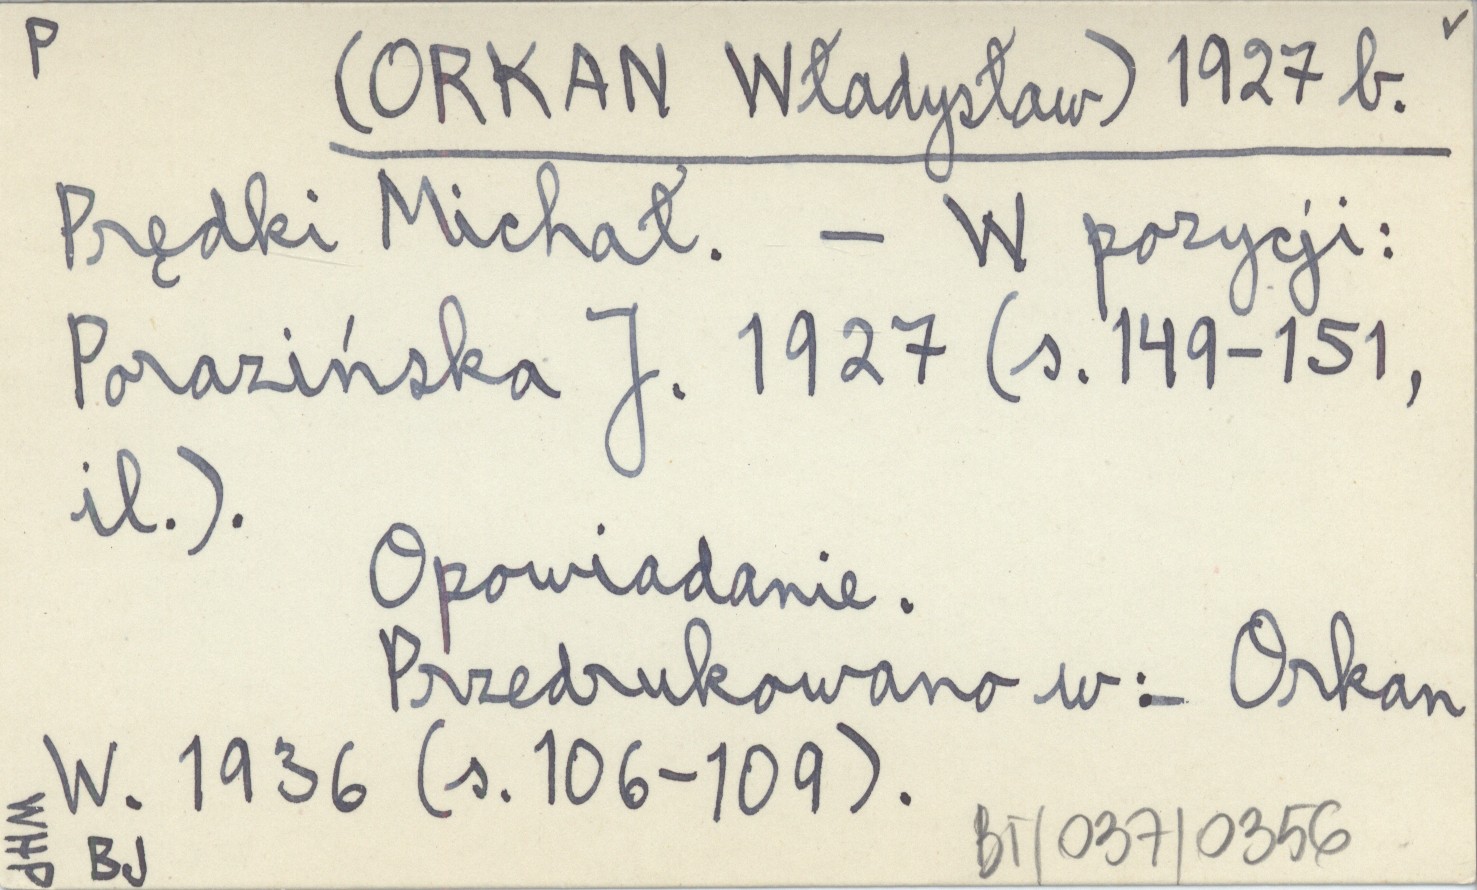 P
(ORKAN Władysław) 1927 b. v
Prędki Michał. – W pozycji:
Porazińska J. 1927 (s. 149-151,
il.).
Opowiadanie.
Przedrukowano w: – Orkan
W. 1936 (s. 106-109).
WHP
BJ
BT/037/0356